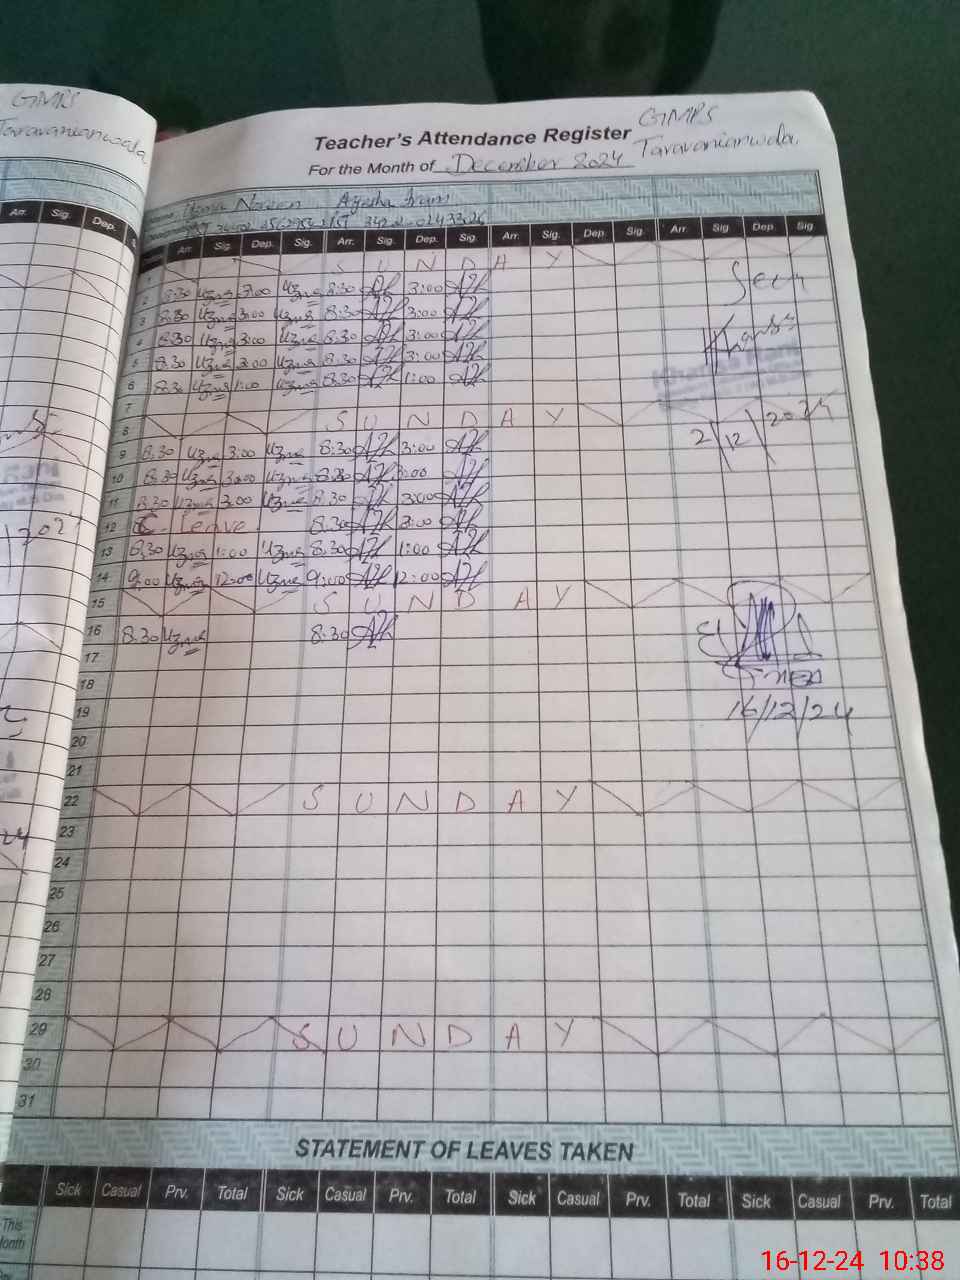 GMPS
Taravanianwala
GMPS
Teacher's Attendance Register
Taravanianwala.
For the Month of December 2024
Uzma Noreen Ayesha Irum
Arr. Sig. Dep.
Arr. Sig. Dep. Sig. Arr. Sig. Dep. Sig. Arr. Sig. Dep. Sig. Arr. Sig. Dep. Sig.
1 SUNDAY
2 8:30 Uzma 3:00 Uzma 8:30 3:00
Seen
3 8:30 Uzma 3:00 Uzma 8:30 3:00
4 8:30 Uzma 3:00 Uzma 8:30 3:00
5 8:30 Uzma 3:00 Uzma 8:30 3:00
6 8:30 Uzma 1:00 Uzma 8:30 1:00
7
8 SUNDAY
2/12/2024
9 8:30 Uzma 3:00 Uzma 8:30 3:00
10 8:30 Uzma 3:00 Uzma 8:30 3:00
11 8:30 Uzma 3:00 Uzma 8:30 3:00
12 C. Leave. 8:30 3:00
13 8:30 Uzma 1:00 Uzma 8:30 1:00
14 9:00 Uzma 12:00 Uzma 9:00 12:00
15 SUNDAY
16 8:30 Uzma 8:30
17
18
16/12/24
19
20
21
22 SUNDAY
23
24
25
26
27
28
29 SUNDAY
30
31
STATEMENT OF LEAVES TAKEN
Sick Casual Prv. Total Sick Casual Prv. Total Sick Casual Prv. Total Sick Casual Prv. Total
This
Month
16-12-24 10:38